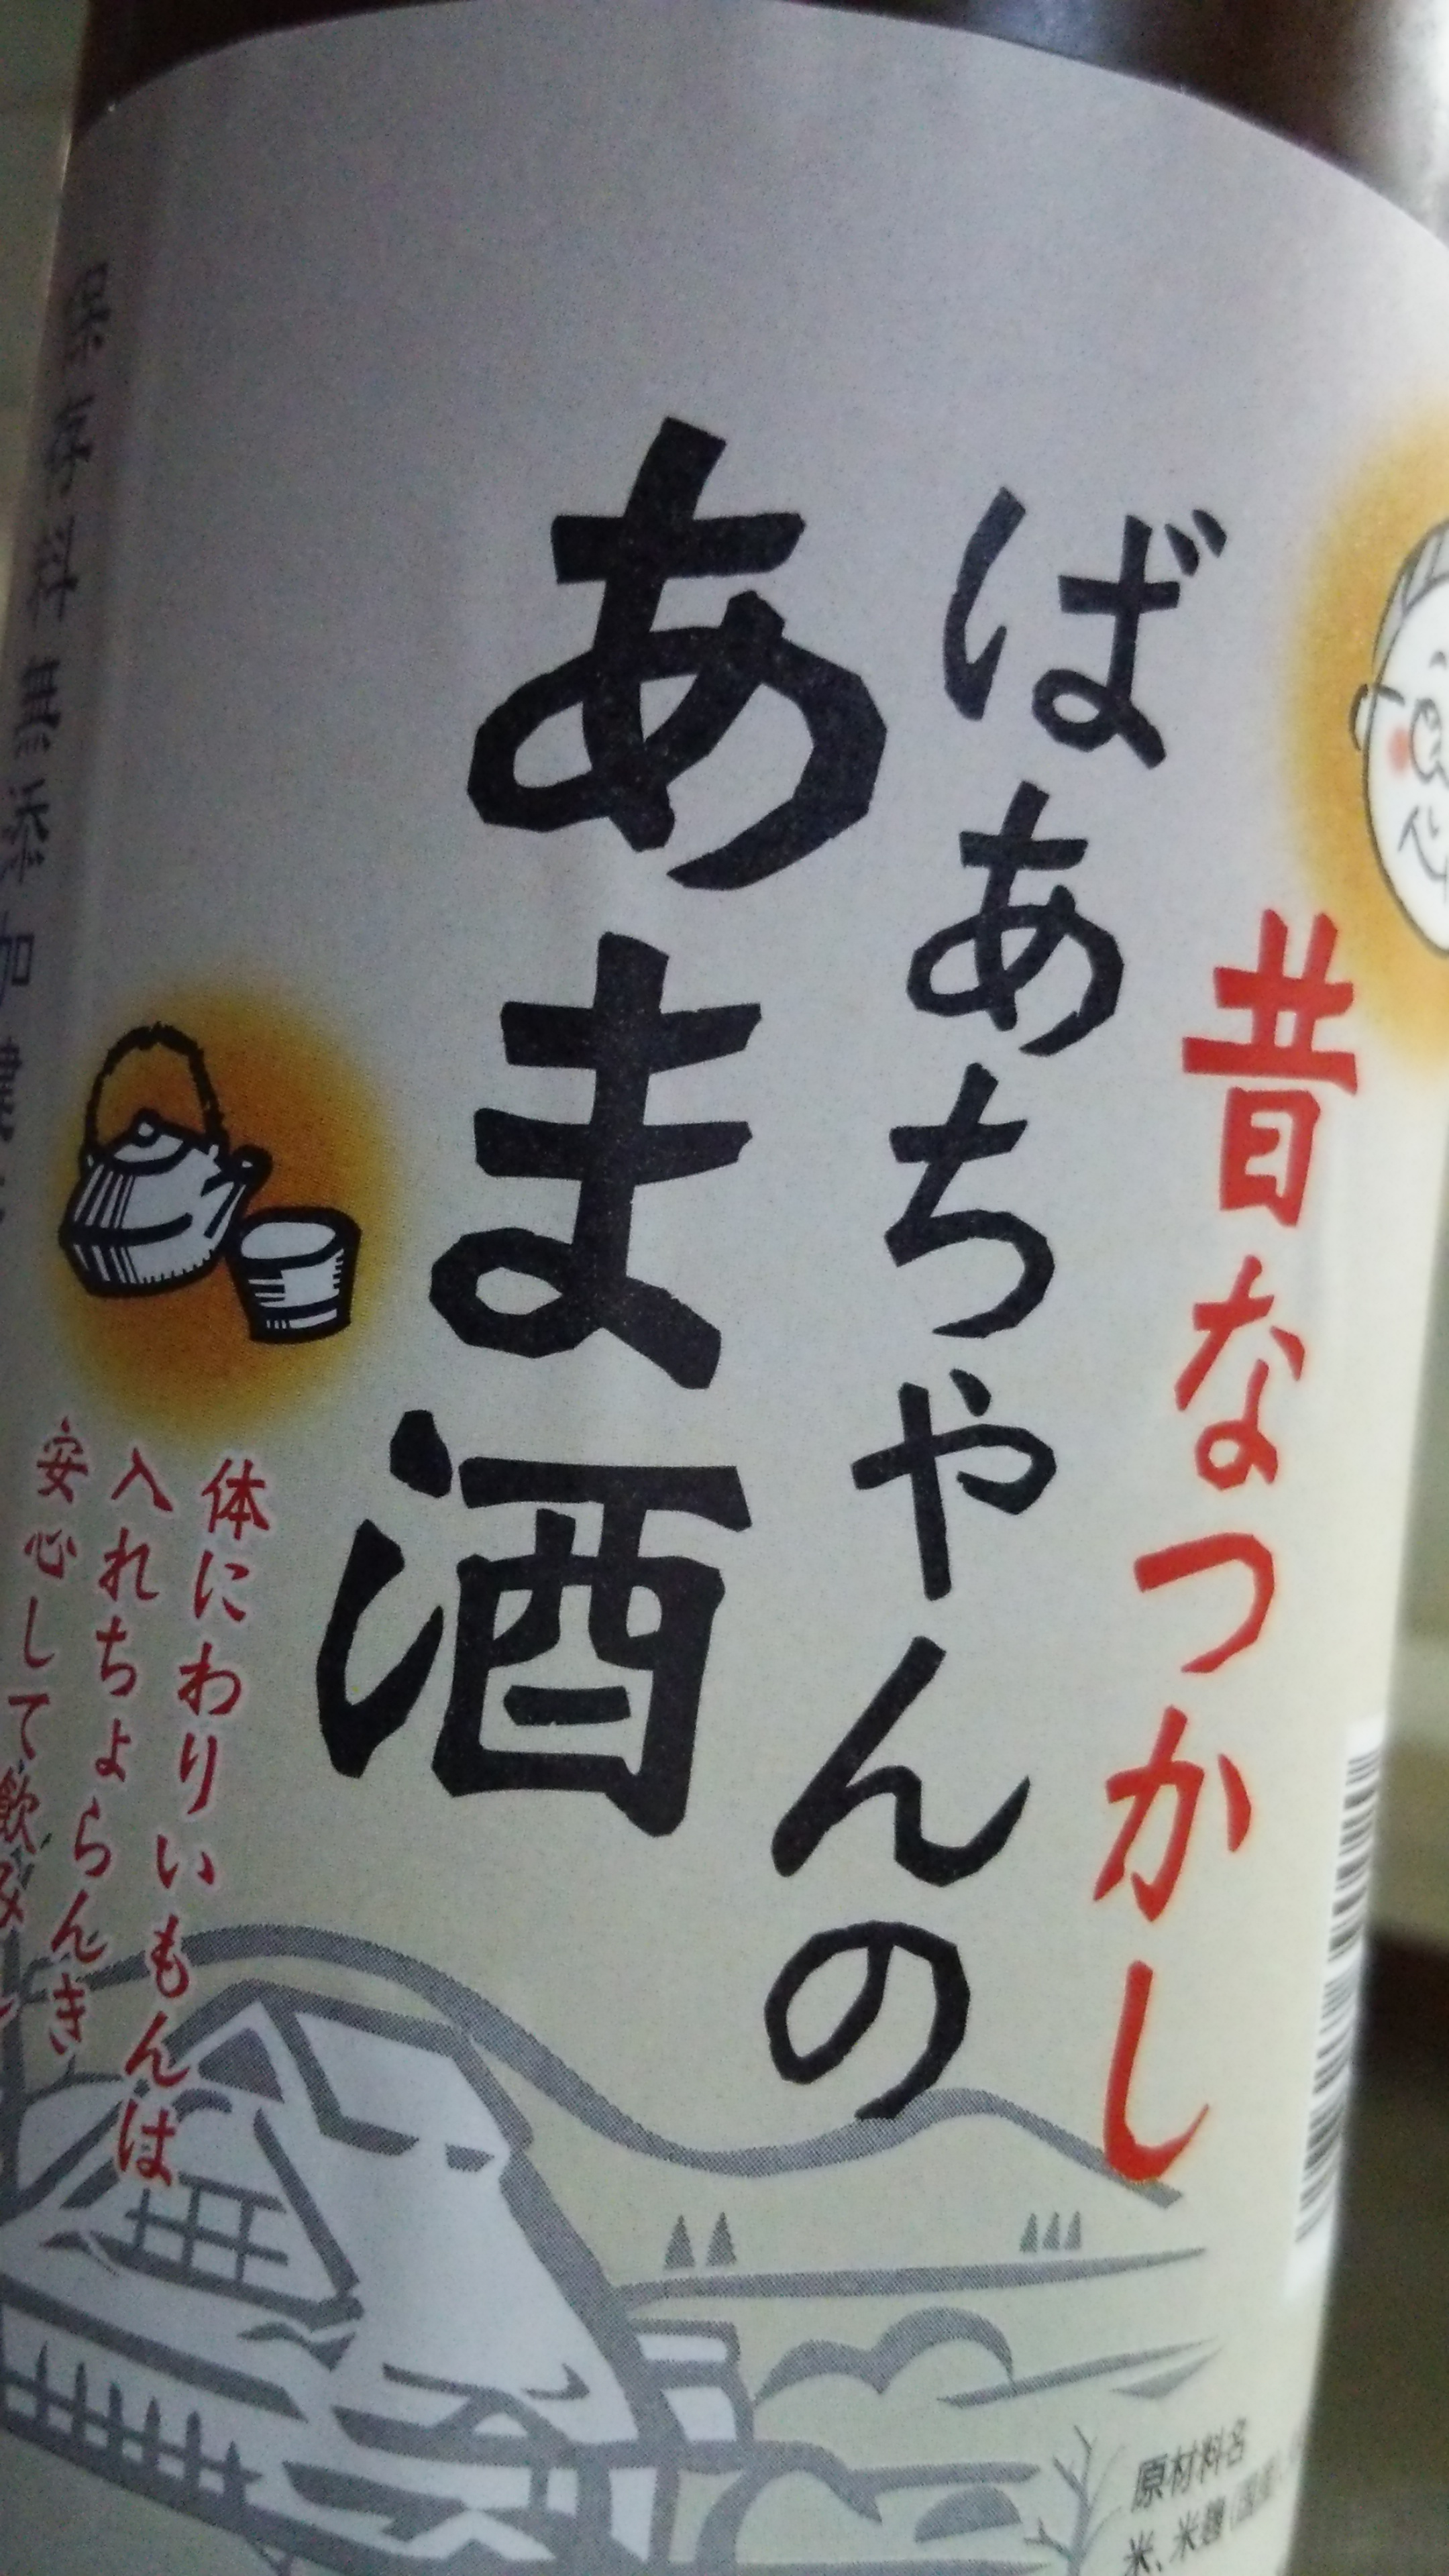 昔なつかし
ばあちゃんの
あま酒
体にわりいもんは
入れちょらんき
安心して飲み
保存料無添加
原材料名
米、米麹(国産